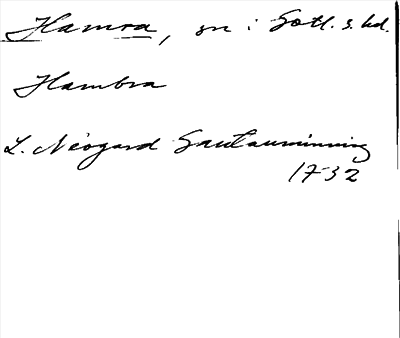 Hamra, sn i Gotl. s. hd.
Hambra
L. Neogard Gautauminning
1732